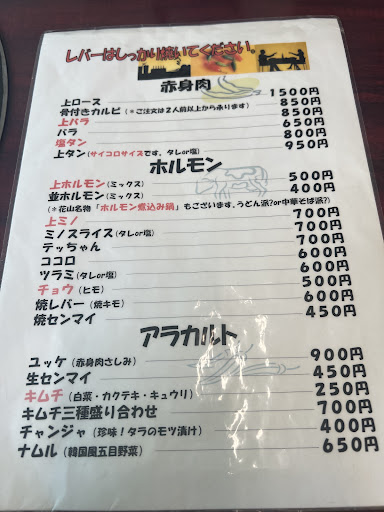 レバーはしっかり焼いてください。
赤身肉
上ロース 1500円
骨付きカルビ (＊ご注文は2人前以上から承ります) 850円
上バラ 850円
バラ 650円
塩タン 800円
上タン(サイコロサイズです。タレor塩) 950円
ホルモン
上ホルモン(ミックス) 500円
並ホルモン(ミックス) 400円
(＊花山名物「ホルモン煮込み鍋」もございます。うどん派?or中華そば派?)
上ミノ 700円
ミノスライス(タレor塩) 700円
テッちゃん 700円
ココロ 600円
ツラミ(タレor塩) 600円
チョウ(ヒモ) 500円
焼レバー(焼キモ) 600円
焼センマイ 450円
アラカルト
ユッケ(赤身肉さしみ) 900円
生センマイ 450円
キムチ(白菜・カクテキ・キュウリ) 250円
キムチ三種盛り合わせ 700円
チャンジャ(珍味！タラのモツ漬け) 400円
ナムル(韓国風五目野菜) 650円